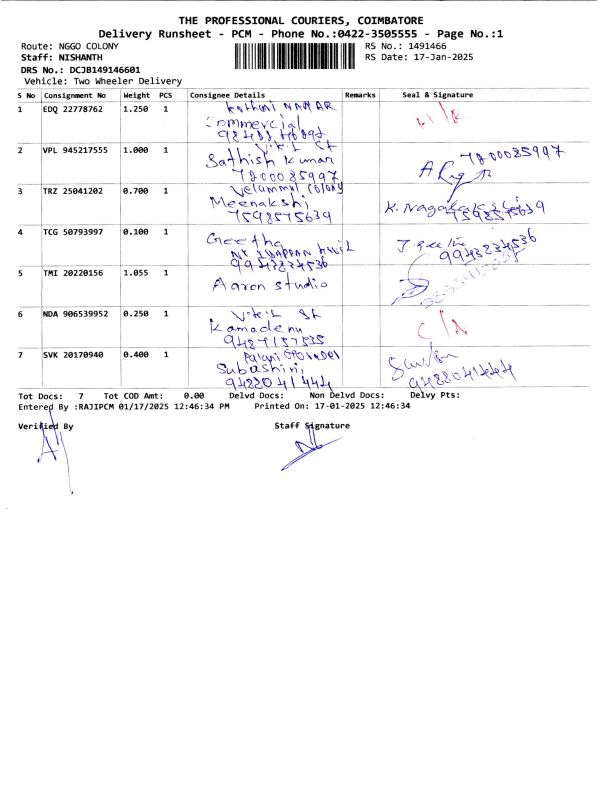 THE PROFESSIONAL COURIERS, COIMBATORE
Delivery Runsheet - PCM - Phone No.:0422-3505555 - Page No.:1
Route: NGGO COLONY RS No.: 1491466
Staff: NISHANTH RS Date: 17-Jan-2025
DRS No.: DCJB149146601
Vehicle: Two Wheeler Delivery
S No Consignment No Weight PCS Consignee Details Remarks Seal & Signature
1 EDQ 22778762 1.250 1 NAGAR
Commercial
2 VPL 945217555 1.000 1 St
Sathish Kumar 7200035997
7200035997
3 TRZ 25041202 0.700 1 Velammal Colony
Meenakshi
7598575639 7598575639
4 TCG 50793997 0.100 1 Geetha
9943234536 9943234536
5 TMI 20220156 1.055 1 Aaron Studio
6 NDA 906539952 0.250 1 St
Kamadenu
9487157535
7 SVK 20170940 0.400 1
Subashini
9488041444 9488041444
Tot Docs: 7 Tot COD Amt: 0.00 Delvd Docs: Non Delvd Docs: Delvy Pts:
Entered By :RAJIPCM 01/17/2025 12:46:34 PM Printed On: 17-01-2025 12:46:34
Verified By Staff Signature